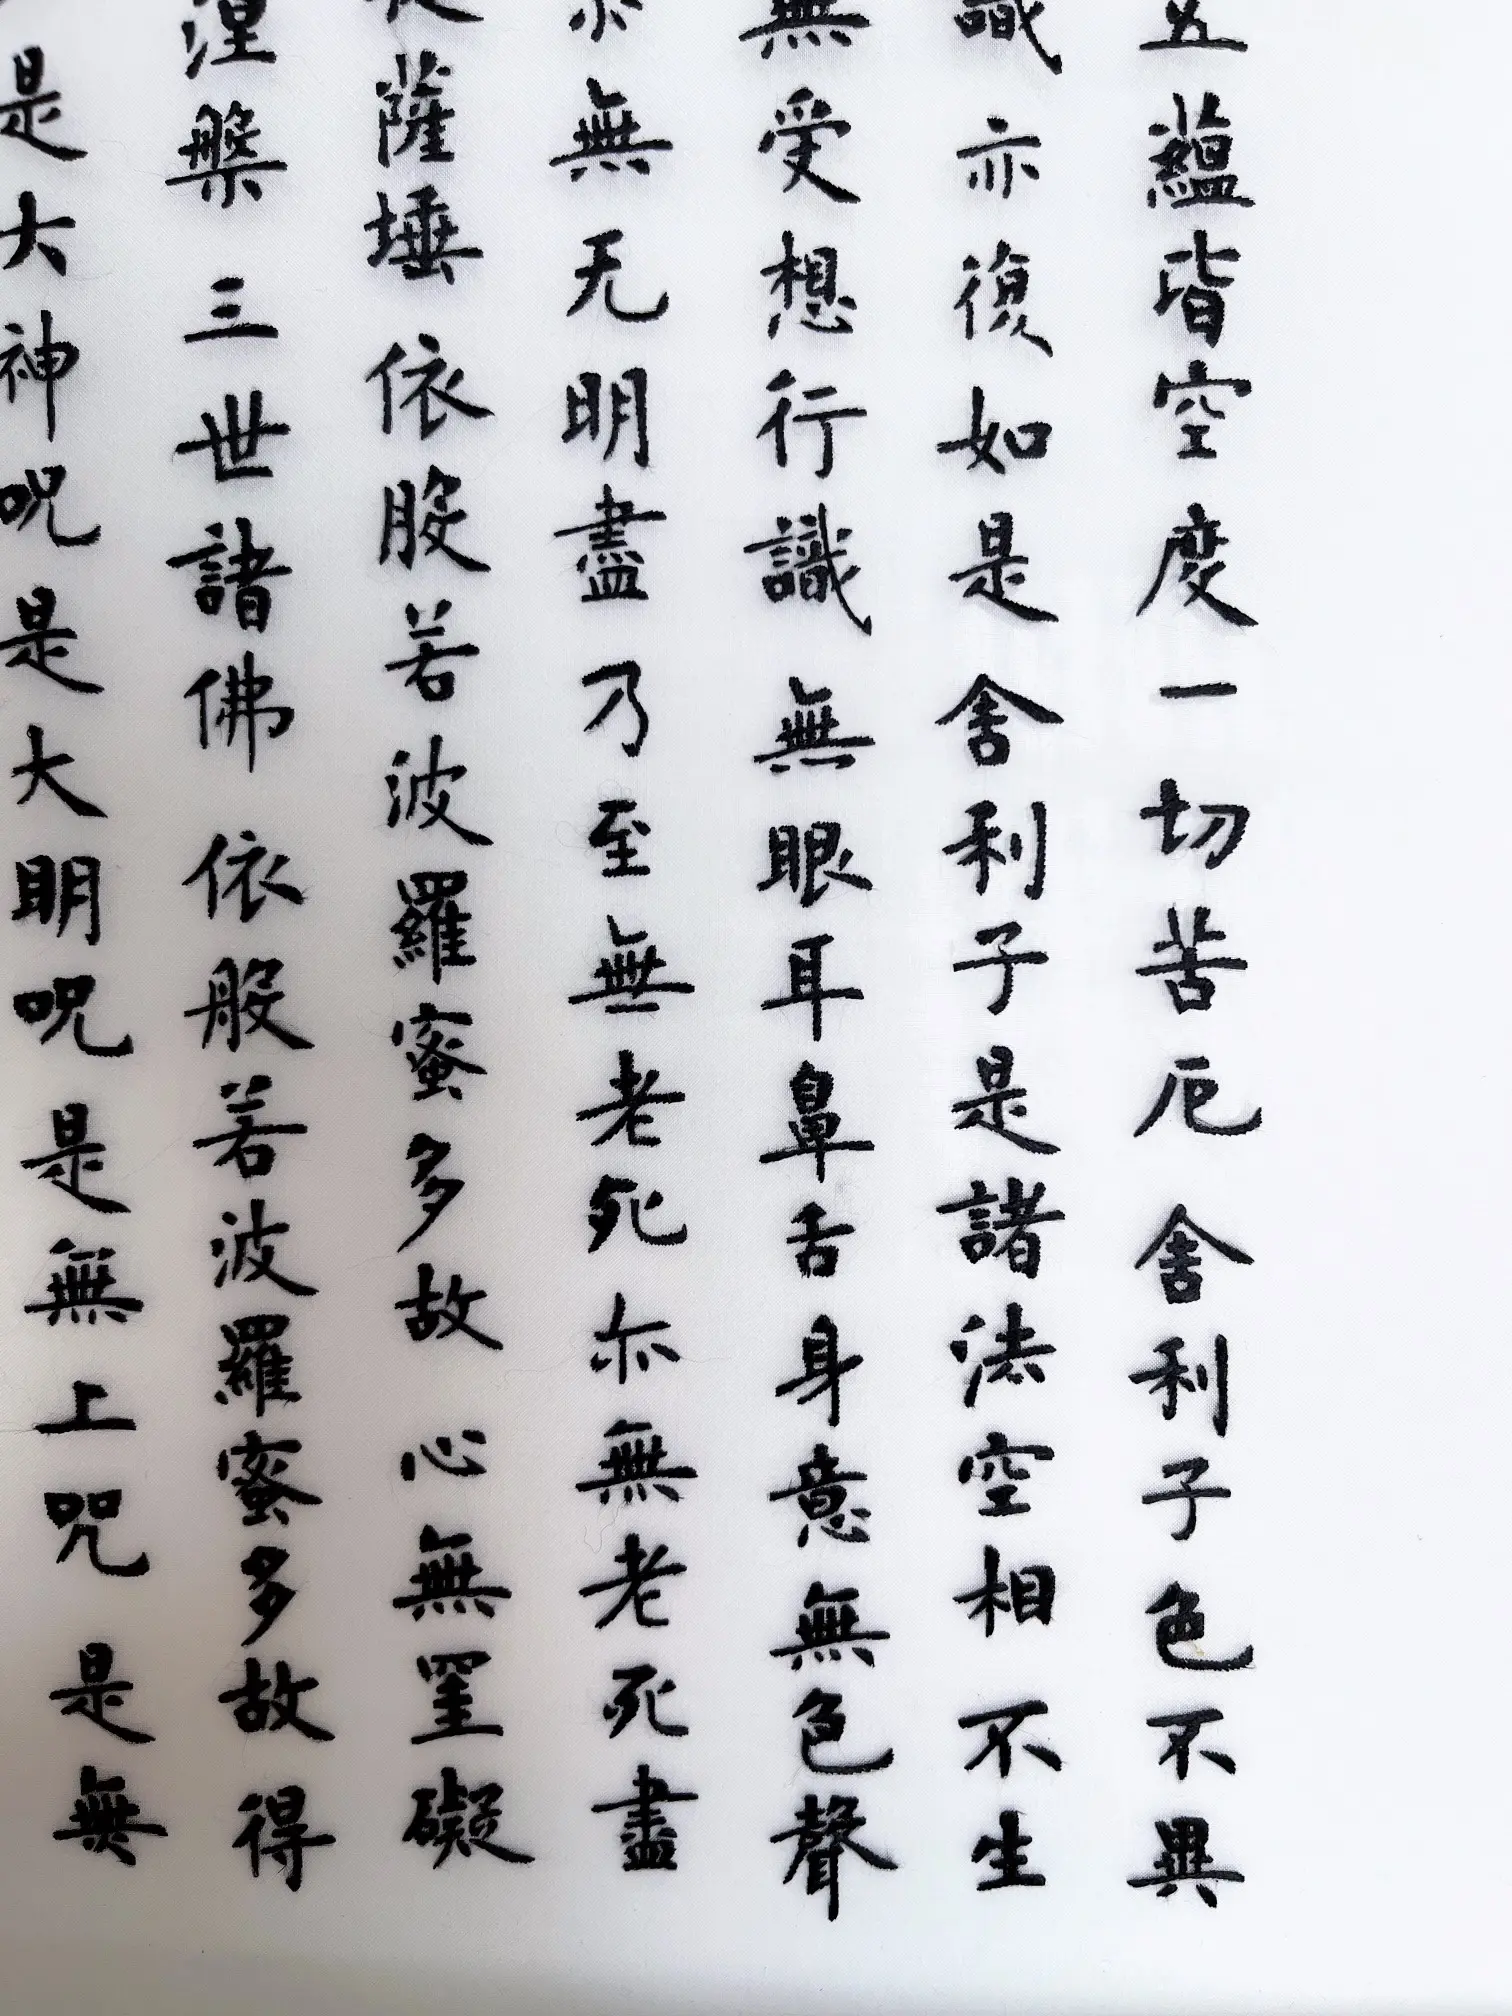 五蘊皆空度一切苦厄舍利子色不異
識亦復如是舍利子是諸法空相不生
無受想行識無眼耳鼻舌身意無色聲
亦無无明盡乃至無老死亦無老死盡
薩埵依般若波羅蜜多故心無罣礙
涅槃三世諸佛依般若波羅蜜多故得
是大神咒是大明咒是無上咒是無